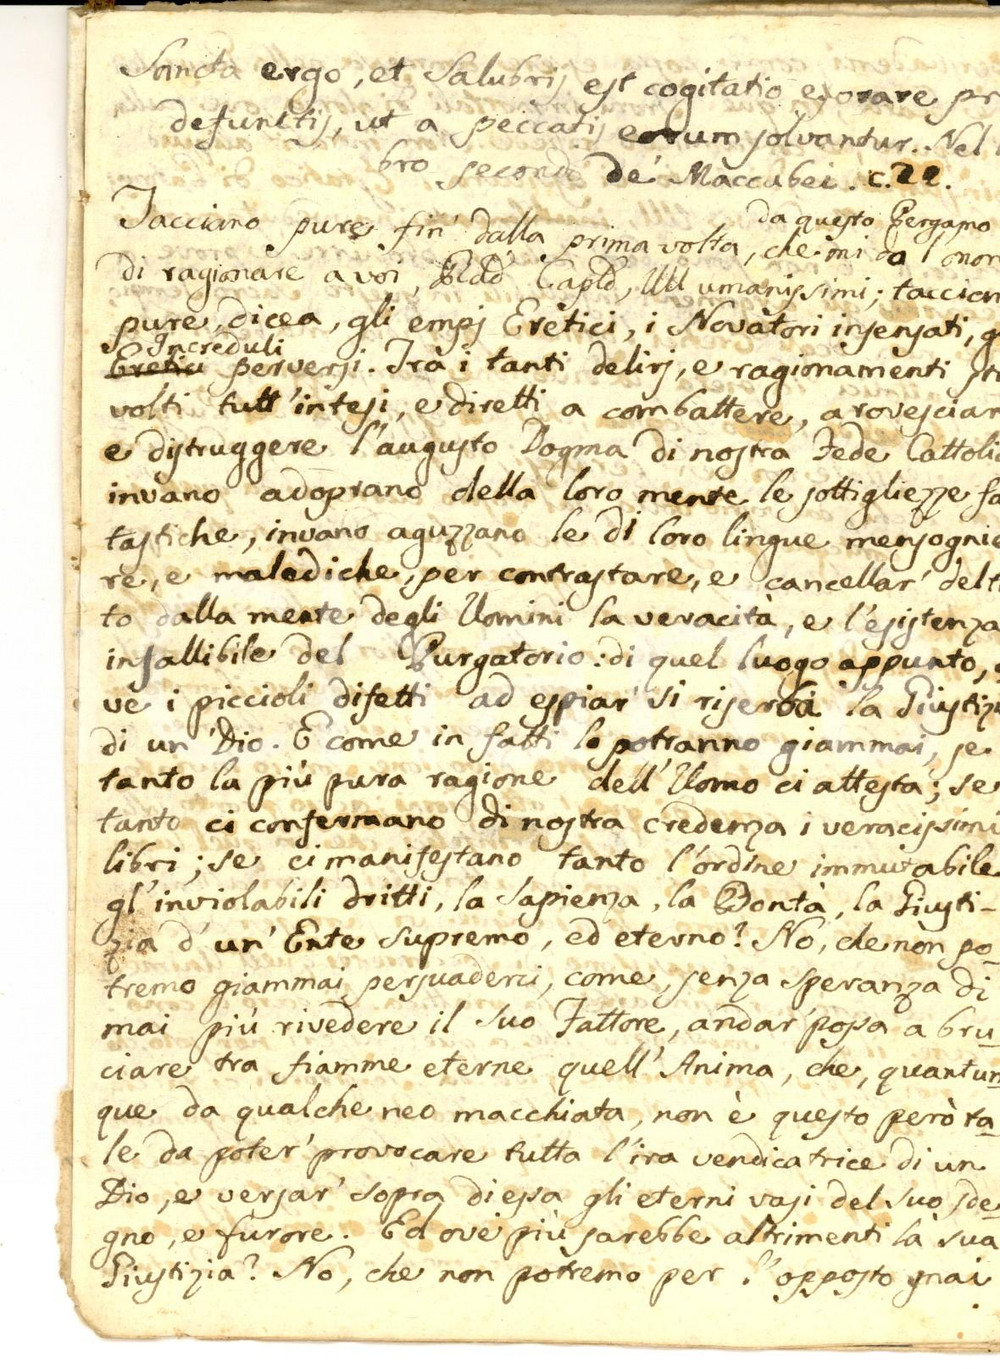 Sancta ergo, et salubris est cogitatio exorare pr
defunctis, ut a peccatis eorum solvantur. Nel l
bro secondo de' Maccabei. c.22.
da questo Pergamo
Tacciano pure fin' dalla prima volta, che mi do l'onor
di ragionare a voi, UU umanissimi; taccian
pure, dicea, gli empj Eretici, i Novatori insensati, g
Increduli
Eretici perversi. Trà i tanti delirj, e ragionamenti str
volti tutt'intesi, e diretti a combattere, a rovesciar
e distruggere l'augusto Dogma di nostra Fede Cattolic
invano adoprano della loro mente le sottigliezze fa
tastiche, invano aguzzano le di loro lingue mensognie
re, e malediche, per contrastare, e cancellar' del t
to dalla mente degli Uomini la veracità, e l'esistenza
infallibile del Purgatorio: di quel luogo appunto, o
ve i piccioli difetti ad espiar' si riserba la Giustizi
di un'Dio. E come in fatti lo potranno giammai, se
tanto la più pura ragione dell'Uomo ci attesta; se
tanto ci confermano di nostra credenza i veracissimi
libri; se ci manifestano tanto l'ordine immutabile
gl'inviolabili dritti, la Sapienza, la Bontà, la Giusti-
zia d'un' Ente supremo, ed eterno? No, che non po-
tremo giammai persuaderci, come, senza speranza di
mai più rivedere il suo Fattore, andar' possa a bru-
ciare tra fiamme eterne quell'Anima, che, quantun
que da qualche neo macchiata, non è questo però ta-
le da poter' provocare tutta l'ira vendicatrice di un
Dio, e versar' sopra di essa gli eterni vasi del suo sde-
gno, e furore. Ed ove più sarebbe altrimenti la sua
Giustizia? No, che non potremo per l'opposto mai